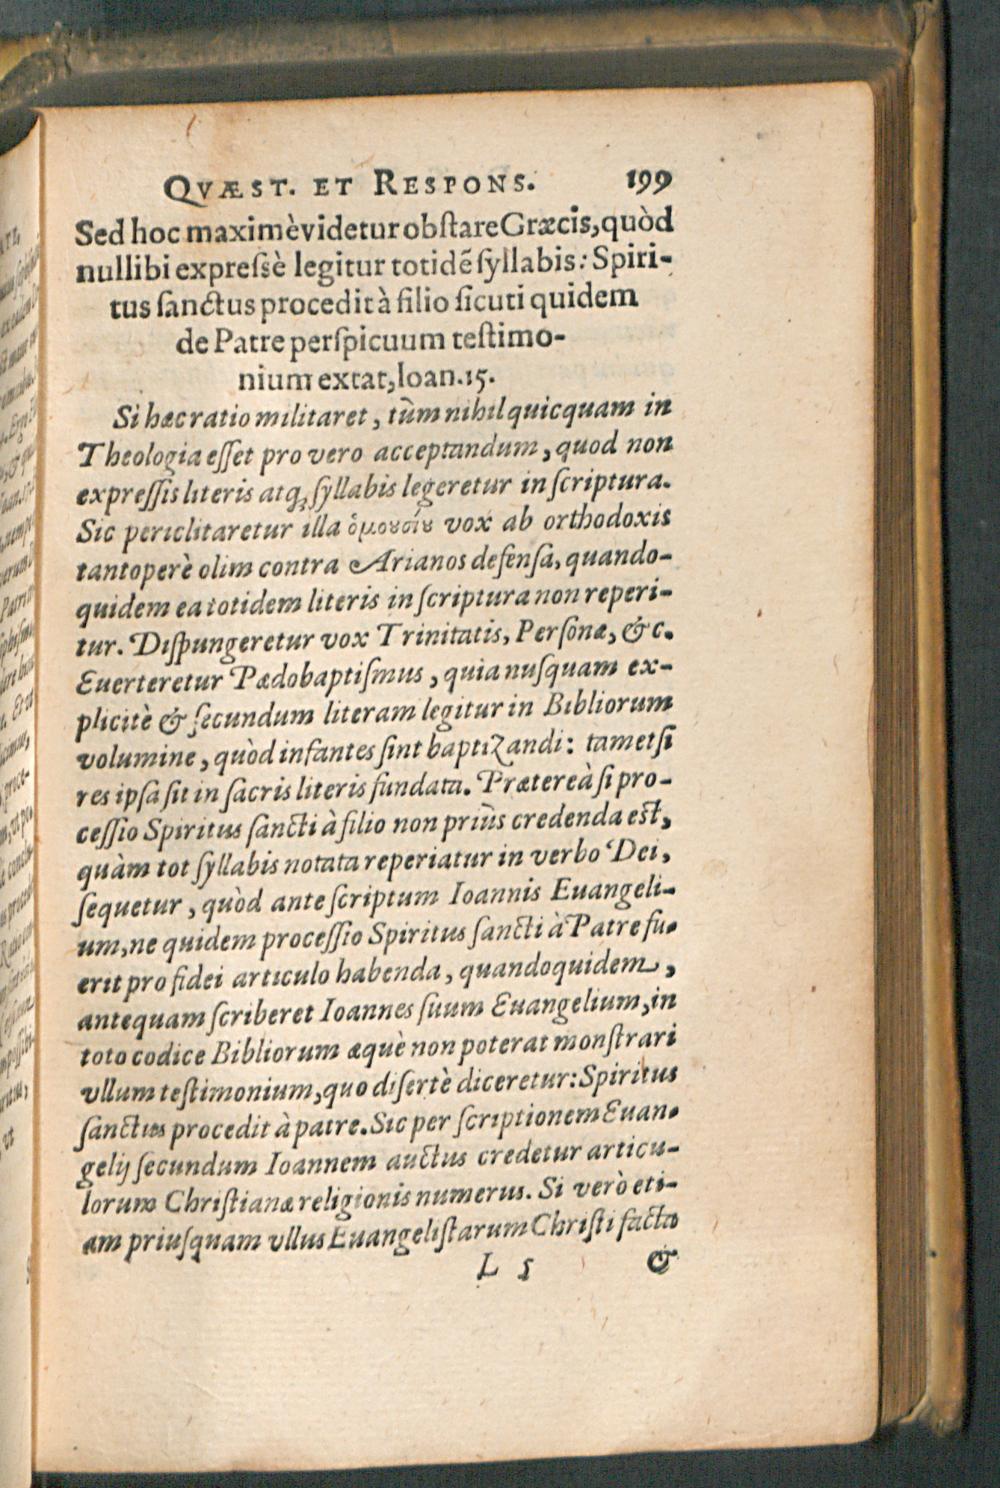 QVÆST. ET RESPONS. 199
Sed hoc maximè videtur obſtare Græcis, quòd
nullibi expreſsè legitur totidẽ ſyllabis: Spiri-
tus ſanctus procedit à filio ſicuti quidem
de Patre perſpicuum teſtimo-
nium extat, Ioan. 15.
Si hæc ratio militaret, tùm nihil quicquam in
Theologia eſſet pro vero acceptandum, quod non
expreſſis literis atq; ſyllabis legeretur in ſcriptura.
Sic periclitaretur illa ὁμουσίυ vox ab orthodoxis
tantoperè olim contra Arianos defenſa, quando-
quidem ea totidem literis in ſcriptura non reperi-
tur. Diſpungeretur vox Trinitatis, Perſonæ, &c.
Euerteretur Pædobaptiſmus, quia nuſquam ex-
plicitè & ſecundum literam legitur in Bibliorum
volumine, quòd infantes ſint baptizandi: tametſi
res ipſa ſit in ſacris literis fundata. Prætereà ſi pro-
ceſſio Spiritus ſancti à filio non priùs credenda eſt,
quàm tot ſyllabis notata reperiatur in verbo Dei,
ſequetur, quòd ante ſcriptum Ioannis Euangeli-
um, ne quidem proceſſio Spiritus ſancti à Patre fu-
erit pro fidei articulo habenda, quandoquidem,
antequam ſcriberet Ioannes ſuum Euangelium, in
toto codice Bibliorum æquè non poterat monſtrari
vllum teſtimonium, quo diſertè diceretur: Spiritus
ſanctus procedit à patre. Sic per ſcriptionem Euan-
gelij ſecundum Ioannem auctus credetur articu-
lorum Chriſtianæ religionis numerus. Si verò eti-
am priuſquam vllus Euangeliſtarum Chriſti facta
L 5 &